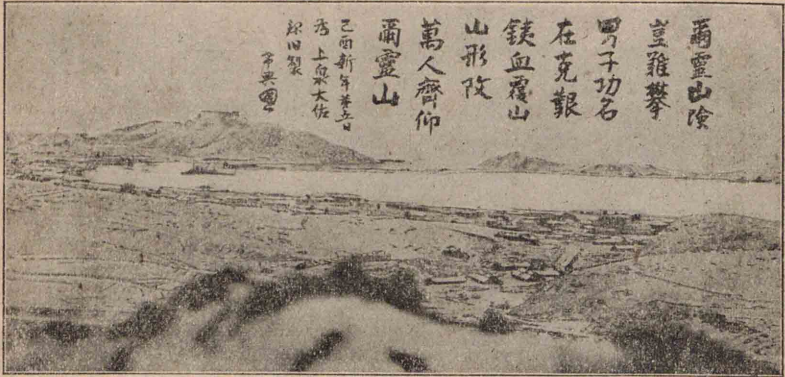 爾靈山險
豈難攀
男子功名
在克艱
銕血覆山
山形改
萬人齊仰
爾靈山
己酉新年第五日
為上泉大佐
録旧製
希典